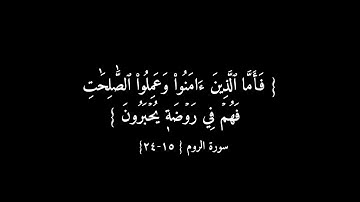 { فَأَمَّا ٱلَّذِينَ ءَامَنُوا۟ وَعَمِلُوا۟ ٱلصَّٰلِحَٰتِ
فَهُمۡ فِي رَوۡضَةٖ يُحۡبَرُونَ }
سورة الروم { ١٥-٢٤}